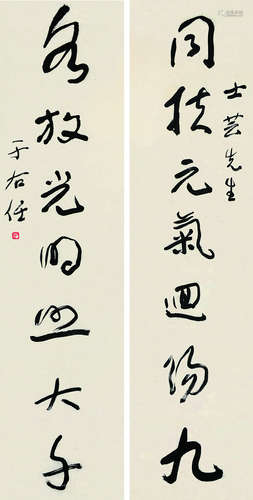 士芸先生
同扶元氣迴陽九
各放光明照大千
于右任